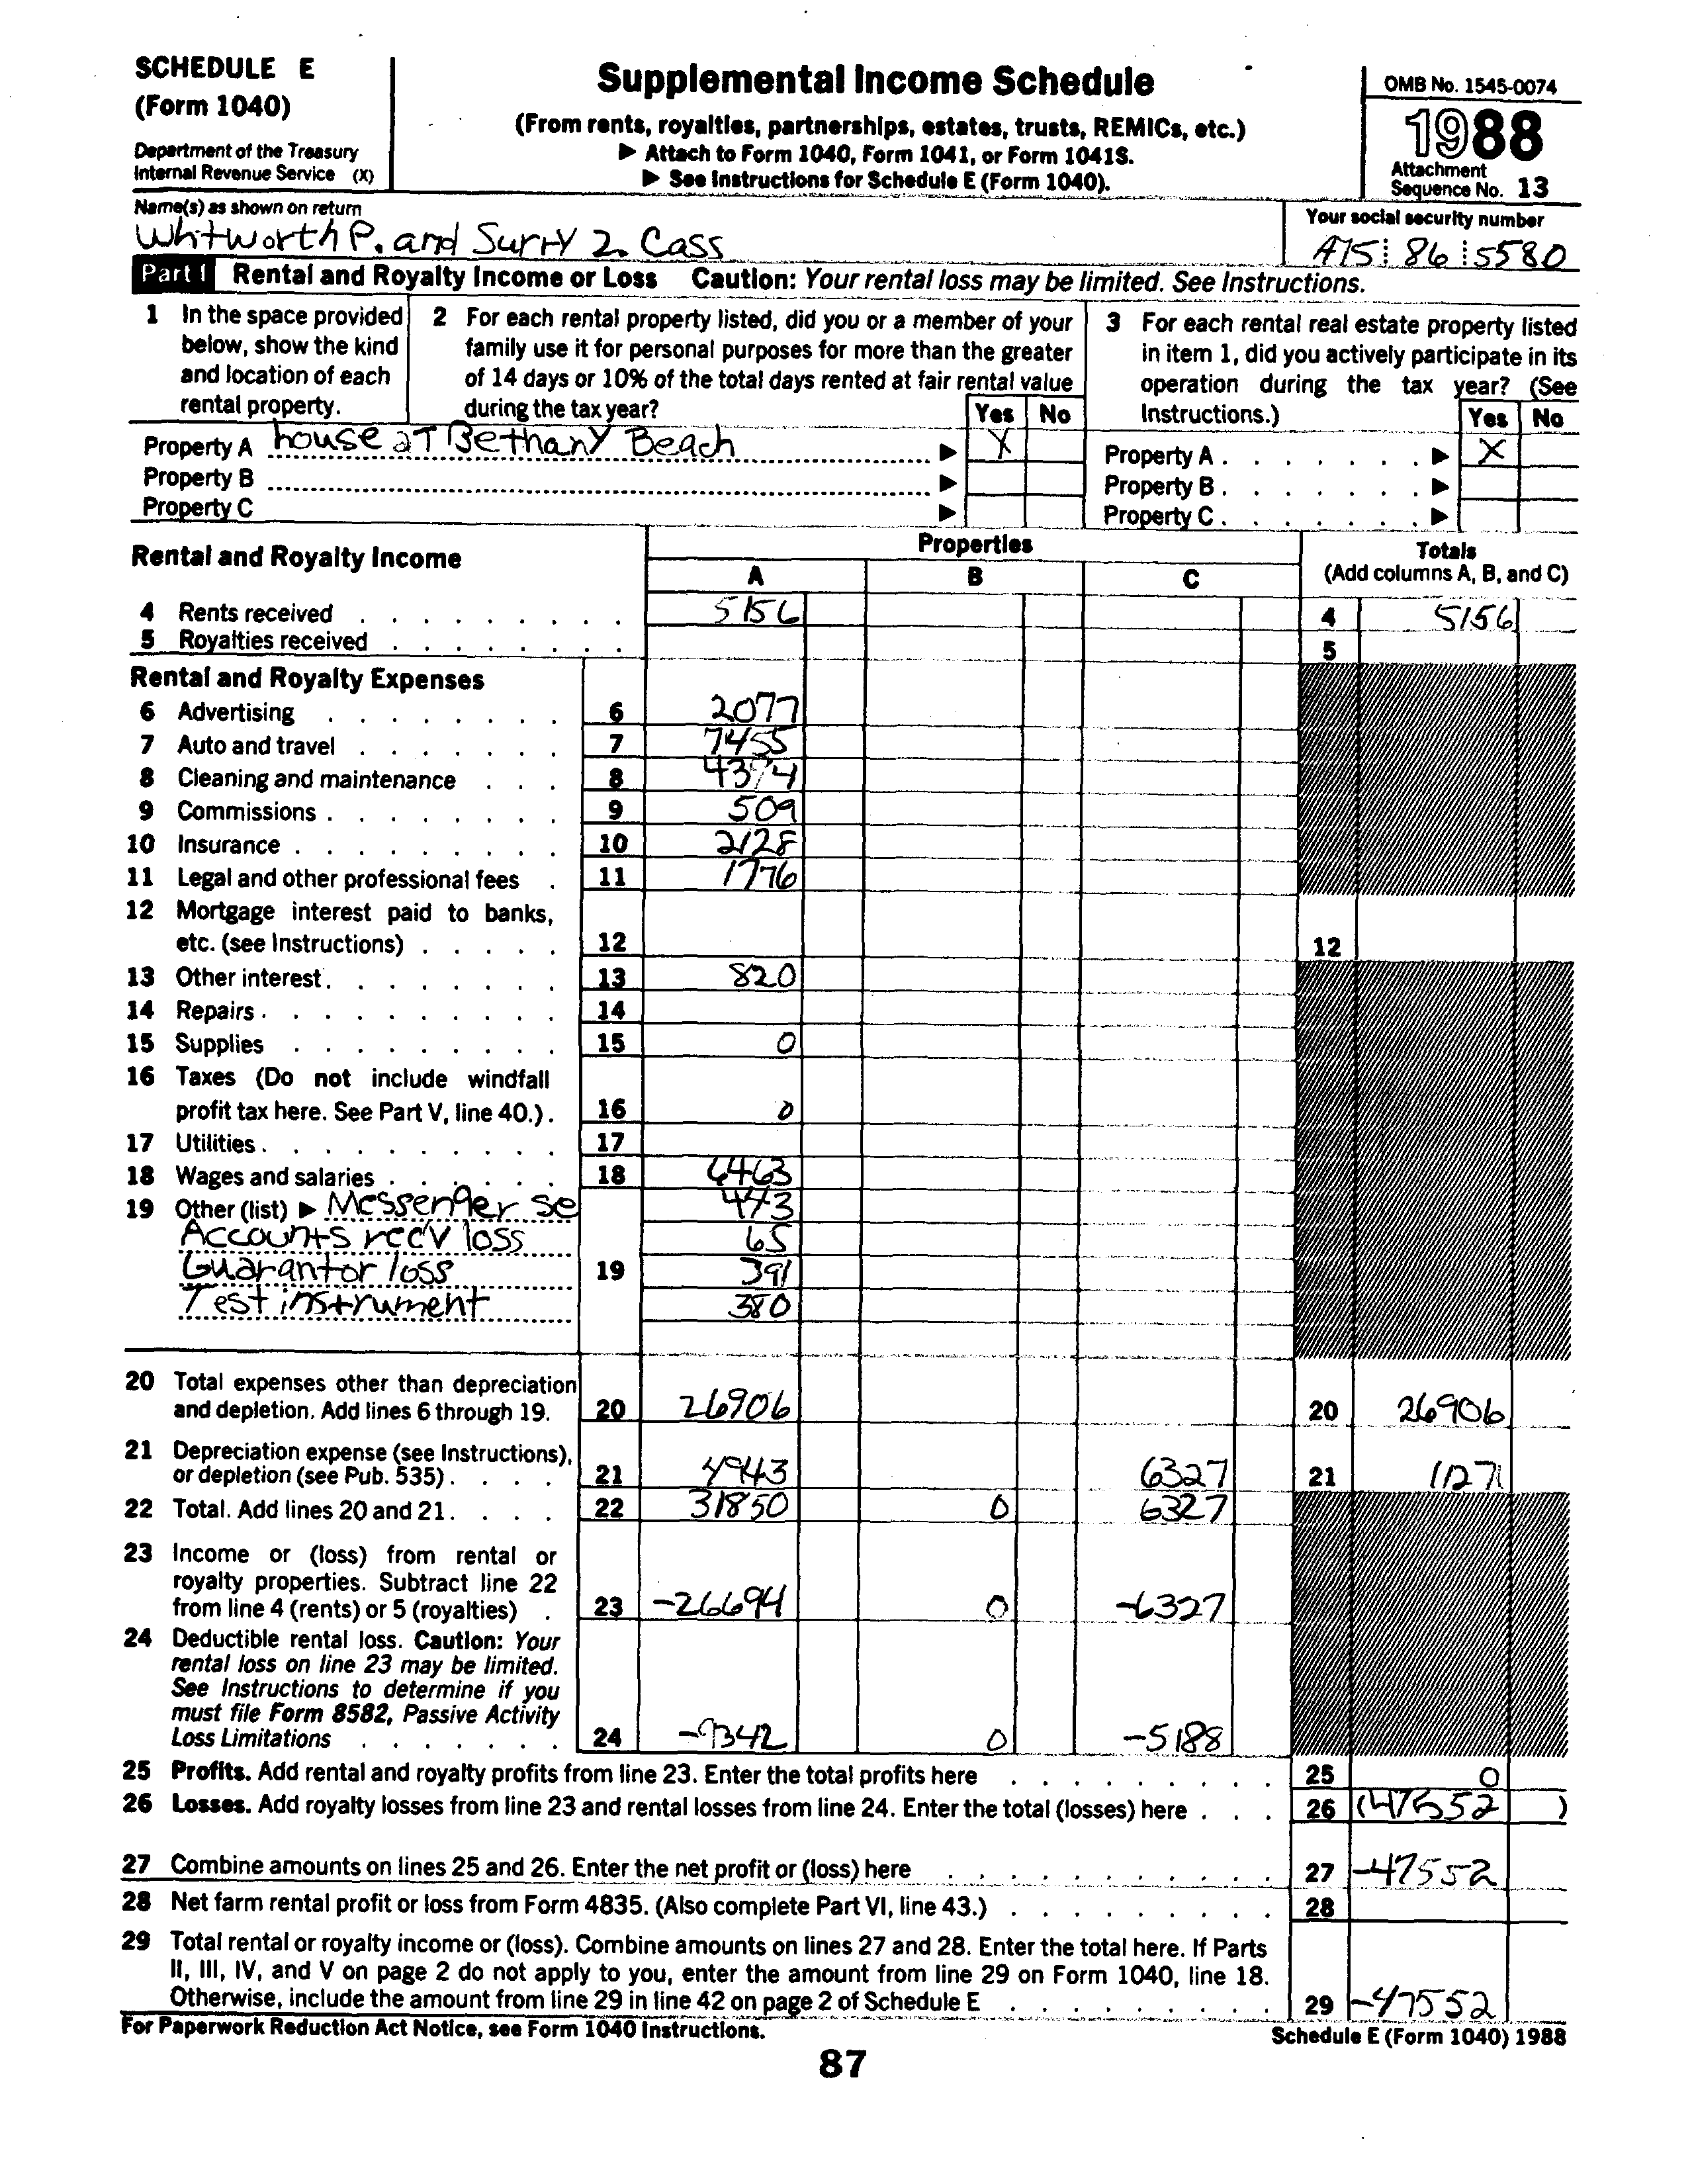 SCHEDULE E
(Form 1040)
Department of the Treasury
Internal Revenue Service (X)
Supplemental Income Schedule
(From rents, royalties, partnerships, estates, trusts, REMICs, etc.)
▶ Attach to Form 1040, Form 1041, or Form 1041S.
▶ See Instructions for Schedule E (Form 1040).
OMB No. 1545-0074
1988
Attachment
Sequence No. 13
Name(s) as shown on return
Whitworth P. and Surry Z. Cass
Your social security number
A15 86 5580
Part I Rental and Royalty Income or Loss Caution: Your rental loss may be limited. See Instructions.
1 In the space provided
below, show the kind
and location of each
rental property.
2 For each rental property listed, did you or a member of your
family use it for personal purposes for more than the greater
of 14 days or 10% of the total days rented at fair rental value
during the tax year?
Yes No
3 For each rental real estate property listed
in item 1, did you actively participate in its
operation during the tax year? (See
Instructions.)
Yes No
Property A house at Bethany Beach ▶ X
Property B ▶
Property C ▶
Property A ▶ X
Property B ▶
Property C ▶
Rental and Royalty Income
Properties
A B C
Totals
(Add columns A, B, and C)
4 Rents received 5156 4 5156
5 Royalties received 5
Rental and Royalty Expenses
6 Advertising 6 2077
7 Auto and travel 7 7455
8 Cleaning and maintenance 8 4374
9 Commissions 9 509
10 Insurance 10 2128
11 Legal and other professional fees 11 1776
12 Mortgage interest paid to banks,
etc. (see Instructions) 12 12
13 Other interest 13 820
14 Repairs 14
15 Supplies 15 0
16 Taxes (Do not include windfall
profit tax here. See Part V, line 40.) 16 0
17 Utilities 17
18 Wages and salaries 18 6463
19 Other (list) ▶ Messenger se 443
Accounts recv loss 65
Guarantor loss 19 391
Test instrument 380
20 Total expenses other than depreciation
and depletion. Add lines 6 through 19. 20 26906 20 26906
21 Depreciation expense (see Instructions),
or depletion (see Pub. 535) 21 4943 6327 21 11271
22 Total. Add lines 20 and 21 22 31850 0 6327
23 Income or (loss) from rental or
royalty properties. Subtract line 22
from line 4 (rents) or 5 (royalties) 23 -26694 0 -6327
24 Deductible rental loss. Caution: Your
rental loss on line 23 may be limited.
See Instructions to determine if you
must file Form 8582, Passive Activity
Loss Limitations 24 -9342 0 -5188
25 Profits. Add rental and royalty profits from line 23. Enter the total profits here 25 0
26 Losses. Add royalty losses from line 23 and rental losses from line 24. Enter the total (losses) here 26 (47552)
27 Combine amounts on lines 25 and 26. Enter the net profit or (loss) here 27 -47552
28 Net farm rental profit or loss from Form 4835. (Also complete Part VI, line 43.) 28
29 Total rental or royalty income or (loss). Combine amounts on lines 27 and 28. Enter the total here. If Parts
II, III, IV, and V on page 2 do not apply to you, enter the amount from line 29 on Form 1040, line 18.
Otherwise, include the amount from line 29 in line 42 on page 2 of Schedule E 29 -47552
For Paperwork Reduction Act Notice, see Form 1040 Instructions.
Schedule E (Form 1040) 1988
87